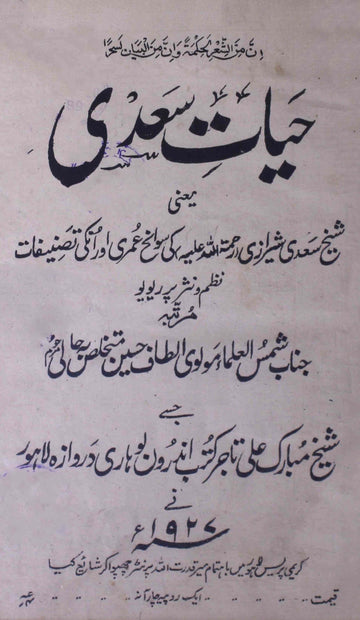 اِنَّ مِنَ الشِّعْرِ لَحِكْمَةً وَاِنَّ مِنَ الْبَيَانِ لَسِحْرًا
حیاتِ سعدی
یعنی
شیخ سعدی شیرازی رحمۃ اللہ علیہ کی سوانح عمری اور اُنکی تصنیفات
نظم و نثر پر ریویو
مرتبہ
جناب شمس العلماء مولوی الطاف حسین متخلص بہ حالی مرحوم
جسے
شیخ مبارک علی تاجر کتب اندرون لوہاری دروازہ لاہور
نے
سنہ ۱۹۲۷ء
کریمی پریس لاہور میں باہتمام میر قدرت اللہ پرنٹر چھپوا کر شائع کیا
قیمت ۔۔۔ ۔۔۔ ایک روپیہ چار آنہ ۔۔۔ ۔۔۔